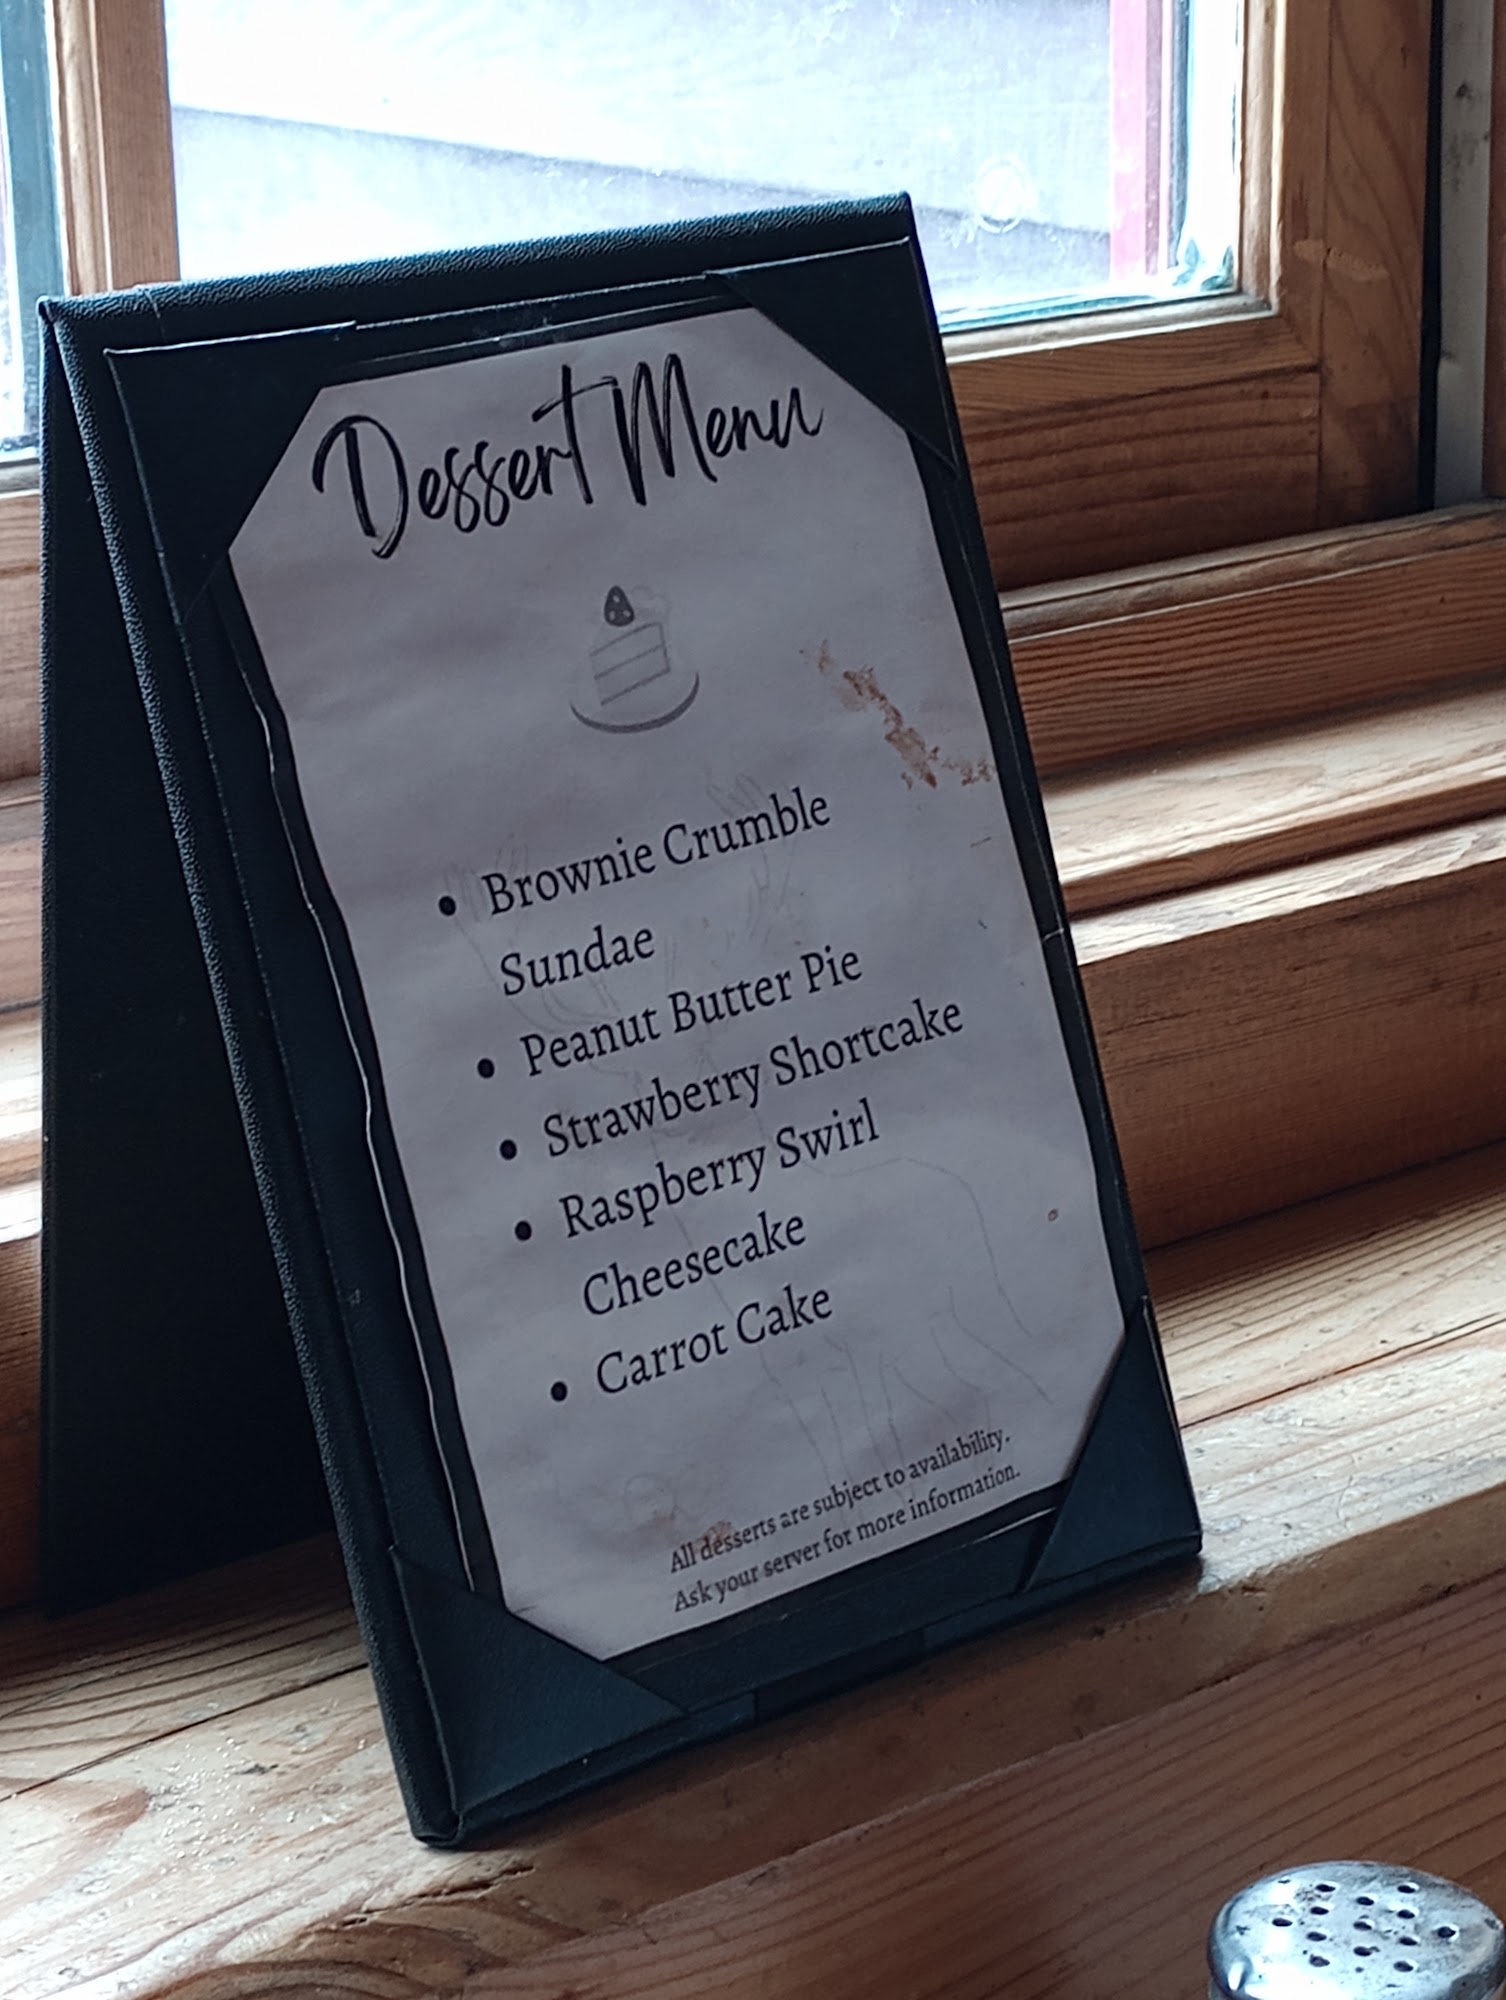 Dessert Menu
• Brownie Crumble
Sundae
• Peanut Butter Pie
• Strawberry Shortcake
• Raspberry Swirl
Cheesecake
• Carrot Cake
All desserts are subject to availability.
Ask your server for more information.